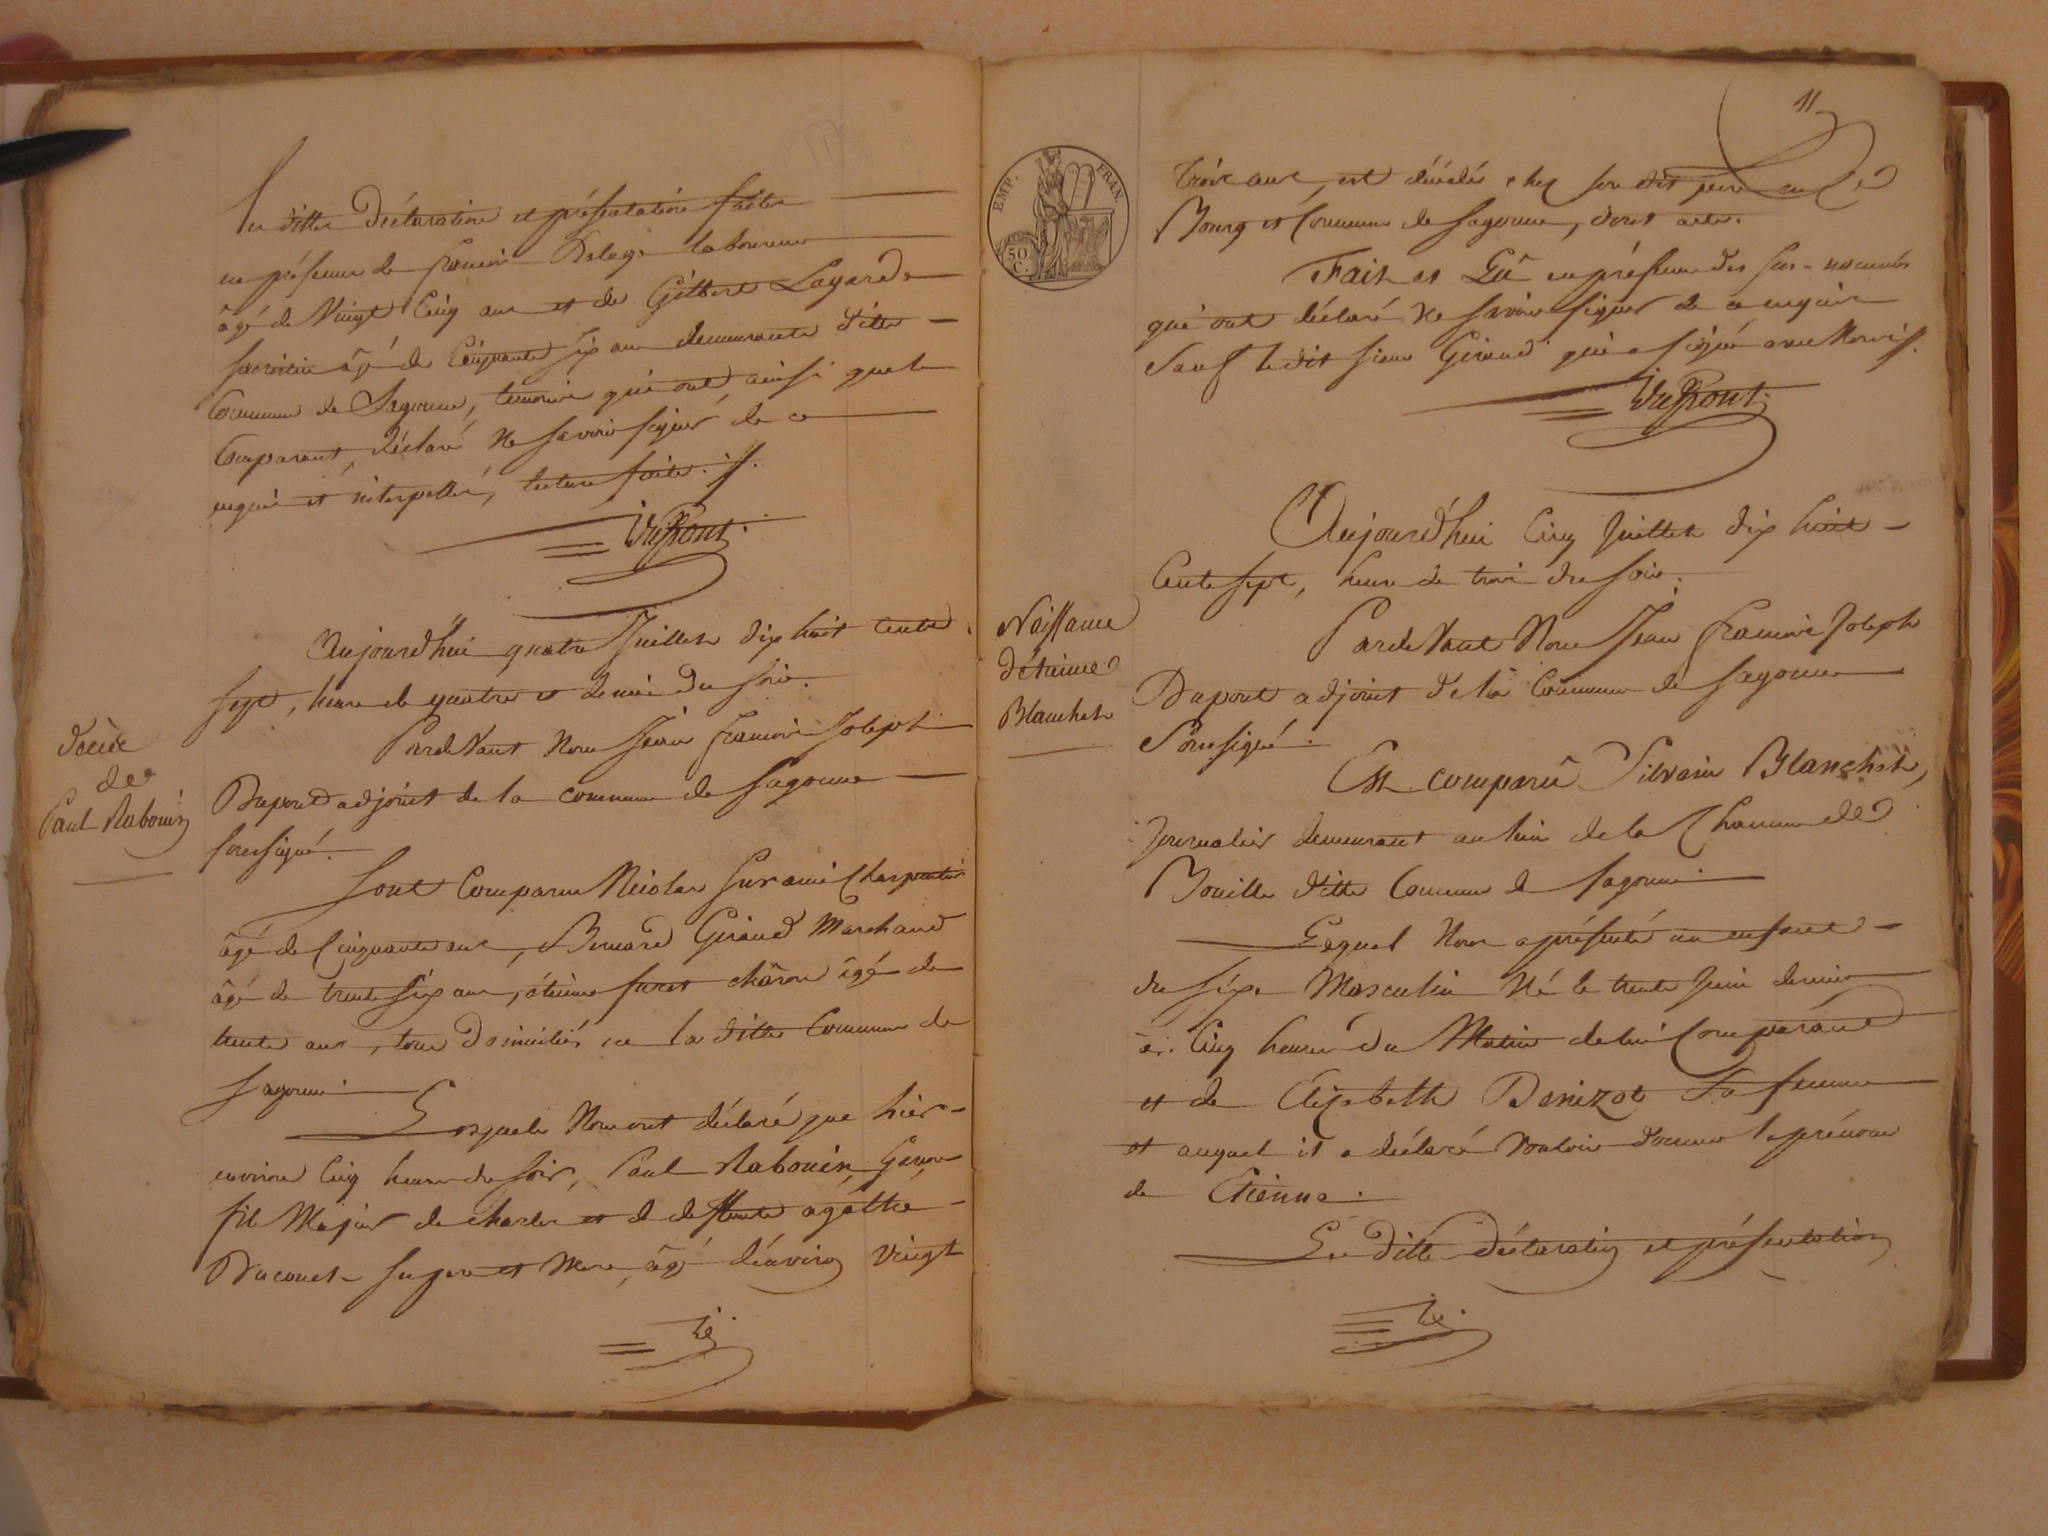 Les dittes déclaration et présentation faites
en présence de francois Delage laboureur
âgé de Vingt Cinq ans et de Gilbert Lagarde
sacristin âgé de Cinquante six ans demeurants ditte
Commune de Sagonne, temoins qui ont, ainsi que le
Comparant, déclaré Ne savoir signer de ce
enquis et interpellé, lecture faite.
DuPont.
Aujourd'hui quatre Juillet dix huit cents
sept, heure de quatre et demie du soir.
Pardevant Nous Jean francois Joseph
Dupont adjoint de la commune de Sagonne
soussigné.
décès
de
Paul Rabouin
Sont Comparus Nicolas Surami Charpentier
âgé de Cinquante ans, Bernard Giraud Marchand
âgé de trente six ans, étienne furet chârон âgé de
trente ans, tous domiciliés en la ditte Commune de
Sagonne.
Lesquels Nous ont déclaré que hier
environ Cinq heures du soir, Paul Rabouin, Garçon
fils Majeur de charles et de deffunte agathe
Ducouet ses pere et Mere, âgé d'environ vingt
EMP. FRAN.
50 C.
11
trois ans, est décédé chez son dit pere en ce
Bourg et Commune de Sagonne, dont acte.
Fait et Lû en présence des sus-nommés
qui ont déclaré Ne savoir signer de ce enquis
Sauf le dit sieur Giraud qui a signé avec Nous
DuPont.
Aujourd'hui Cinq Juillet dix huit
Cents sept, heure de trois du soir.
Pardevant Nous Jean francois Joseph
Dupont adjoint de la Commune de Sagonne
Soussigné.
Naissance
d'étienne
Blanchet
Est comparû Silvain Blanchet,
Journalier demeurant au lieu de la Chaume de
Bouille ditte Commune de Sagonne.
Lequel Nous a présenté un enfant
du séxe Masculin Né le trente Juin dernier
à Cinq heures du Matin de lui Comparant
et de Elizabeth Denizot sa femme
et auquel il a déclaré vouloir donner le prénom
de Etienne.
Les dittes déclaration et présentation